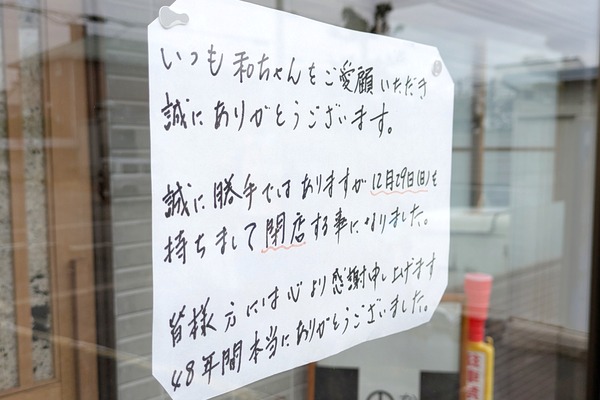 いつも和ちゃんをご愛顧いただき
誠にありがとうございます。
誠に勝手ではありますが12月29日(日)を
持ちまして閉店する事になりました。
皆様方には心より感謝申し上げます
48年間本当にありがとうございました。